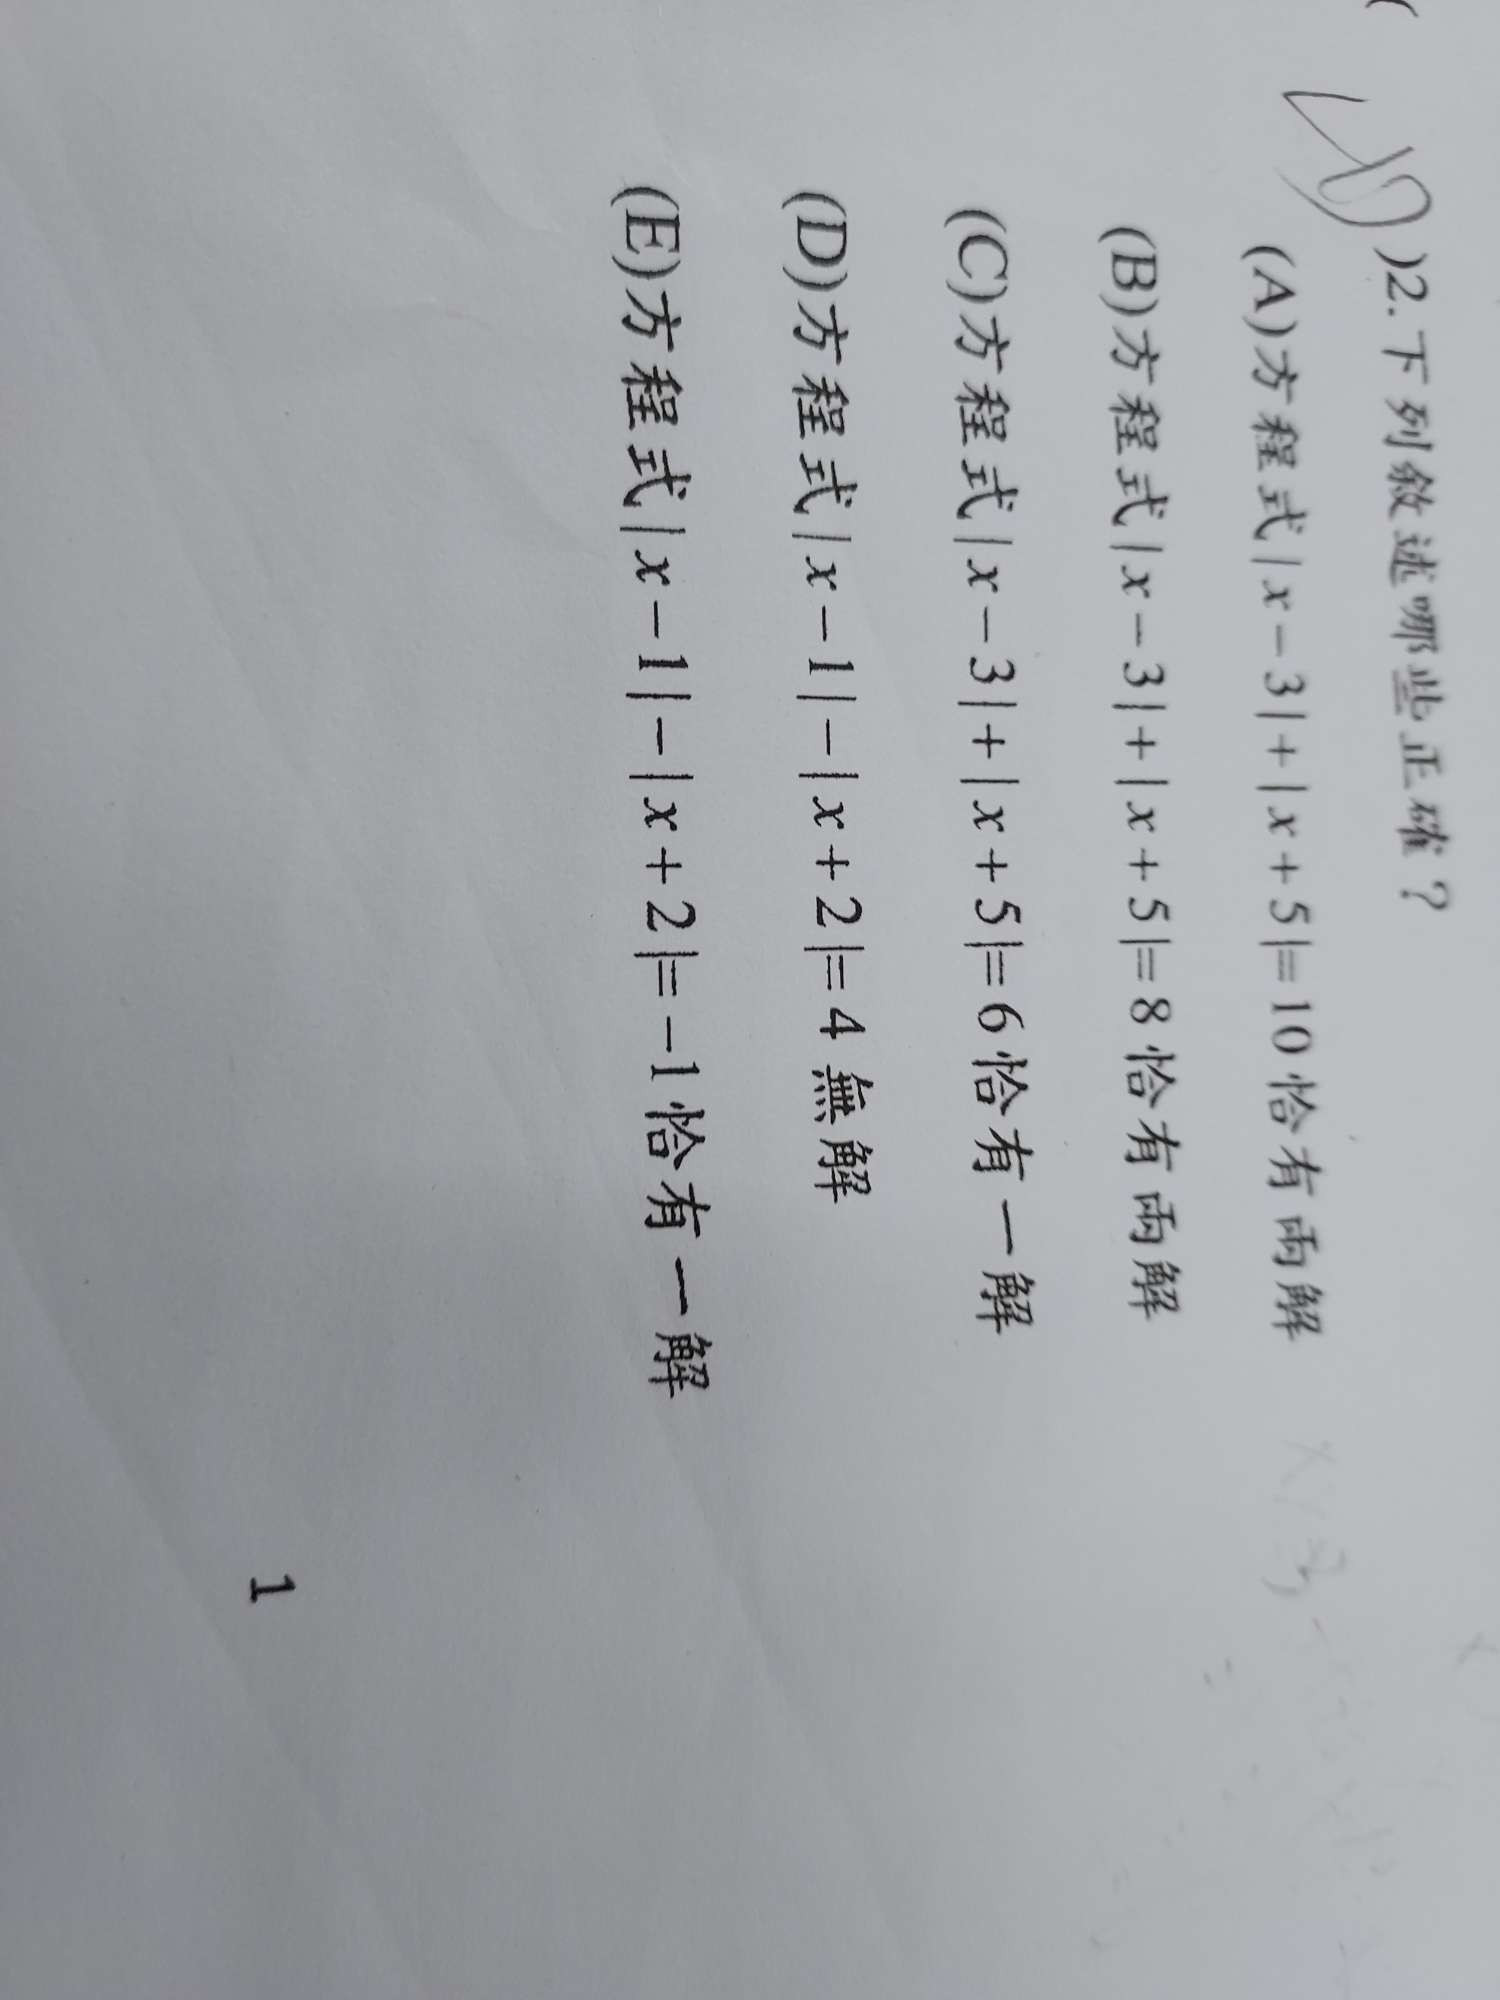 )2.下列敘述哪些正確？
(A)方程式|x－3|＋|x＋5|＝10恰有兩解
(B)方程式|x－3|＋|x＋5|＝8恰有兩解
(C)方程式|x－3|＋|x＋5|＝6恰有一解
(D)方程式|x－1|－|x＋2|＝4無解
(E)方程式|x－1|－|x＋2|＝－1恰有一解
1